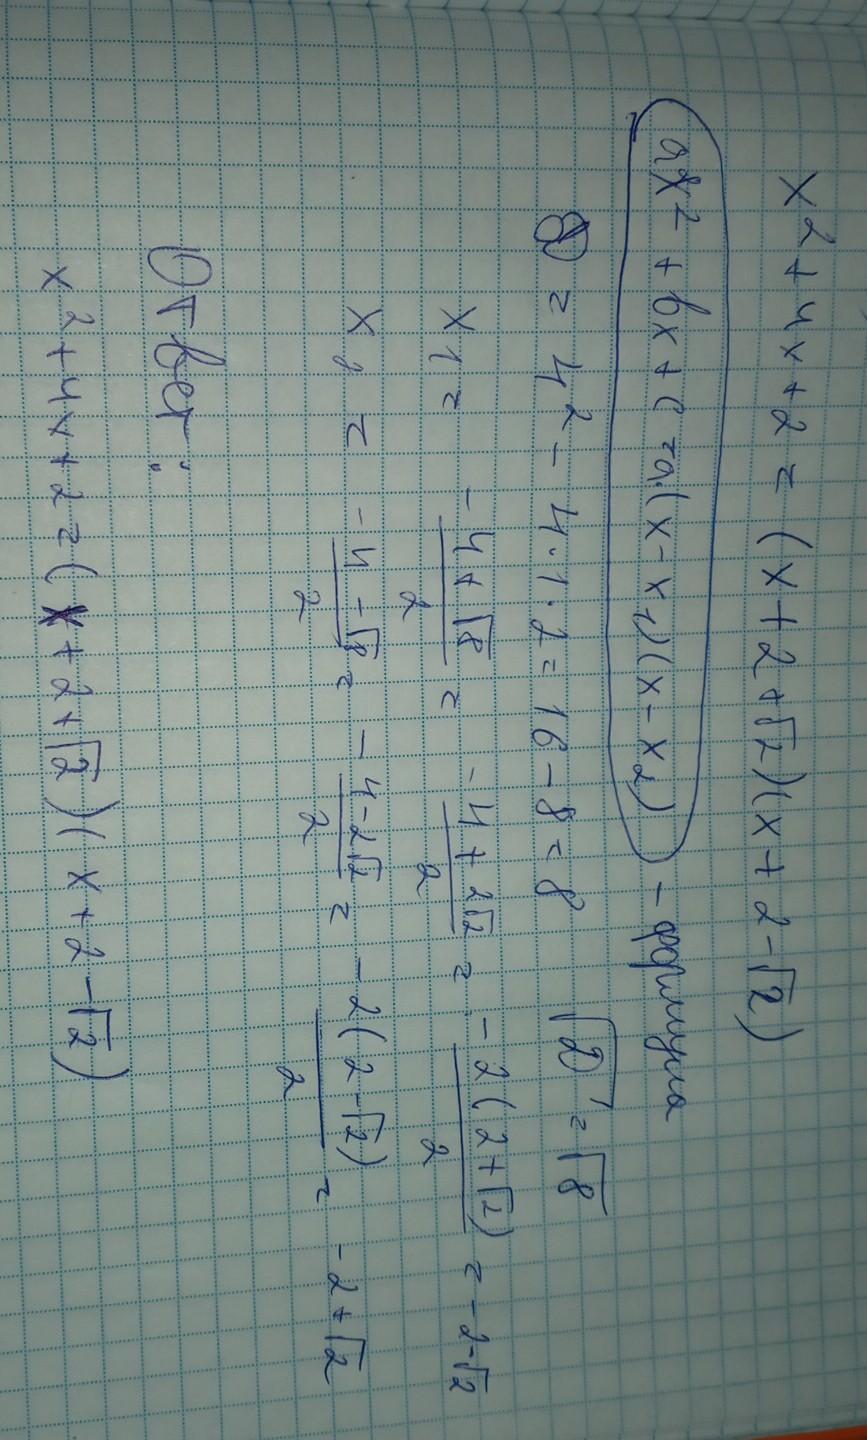 x² + 4x + 2 = (x + 2 + √2)(x + 2 - √2)
ax² + bx + c = a·(x - x₁)(x - x₂) - формула
D = 4² - 4·1·2 = 16 - 8 = 8 √D = √8
x1 = (-4 + √8)/2 = (-4 + 2√2)/2 = (-2(2 + √2))/2 = -2 - √2
x2 = (-4 - √8)/2 = (-4 - 2√2)/2 = (-2(2 - √2))/2 = -2 + √2
Ответ:
x² + 4x + 2 = (x + 2 + √2)(x + 2 - √2)